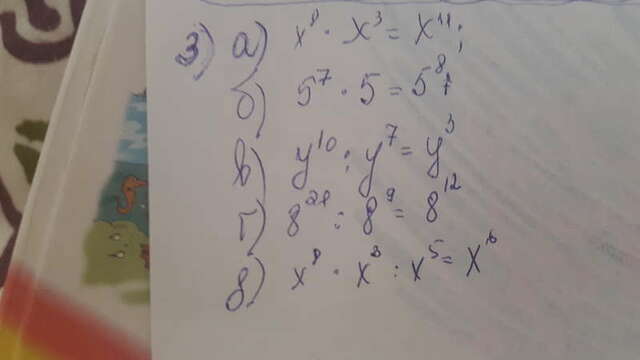 3) а) x⁸ · x³ = x¹¹;
б) 5⁷ · 5 = 5⁸;
в) y¹⁰ : y⁷ = y³
г) 8²¹ : 8⁹ = 8¹²
д) x⁸ · x³ : x⁵ = x⁶